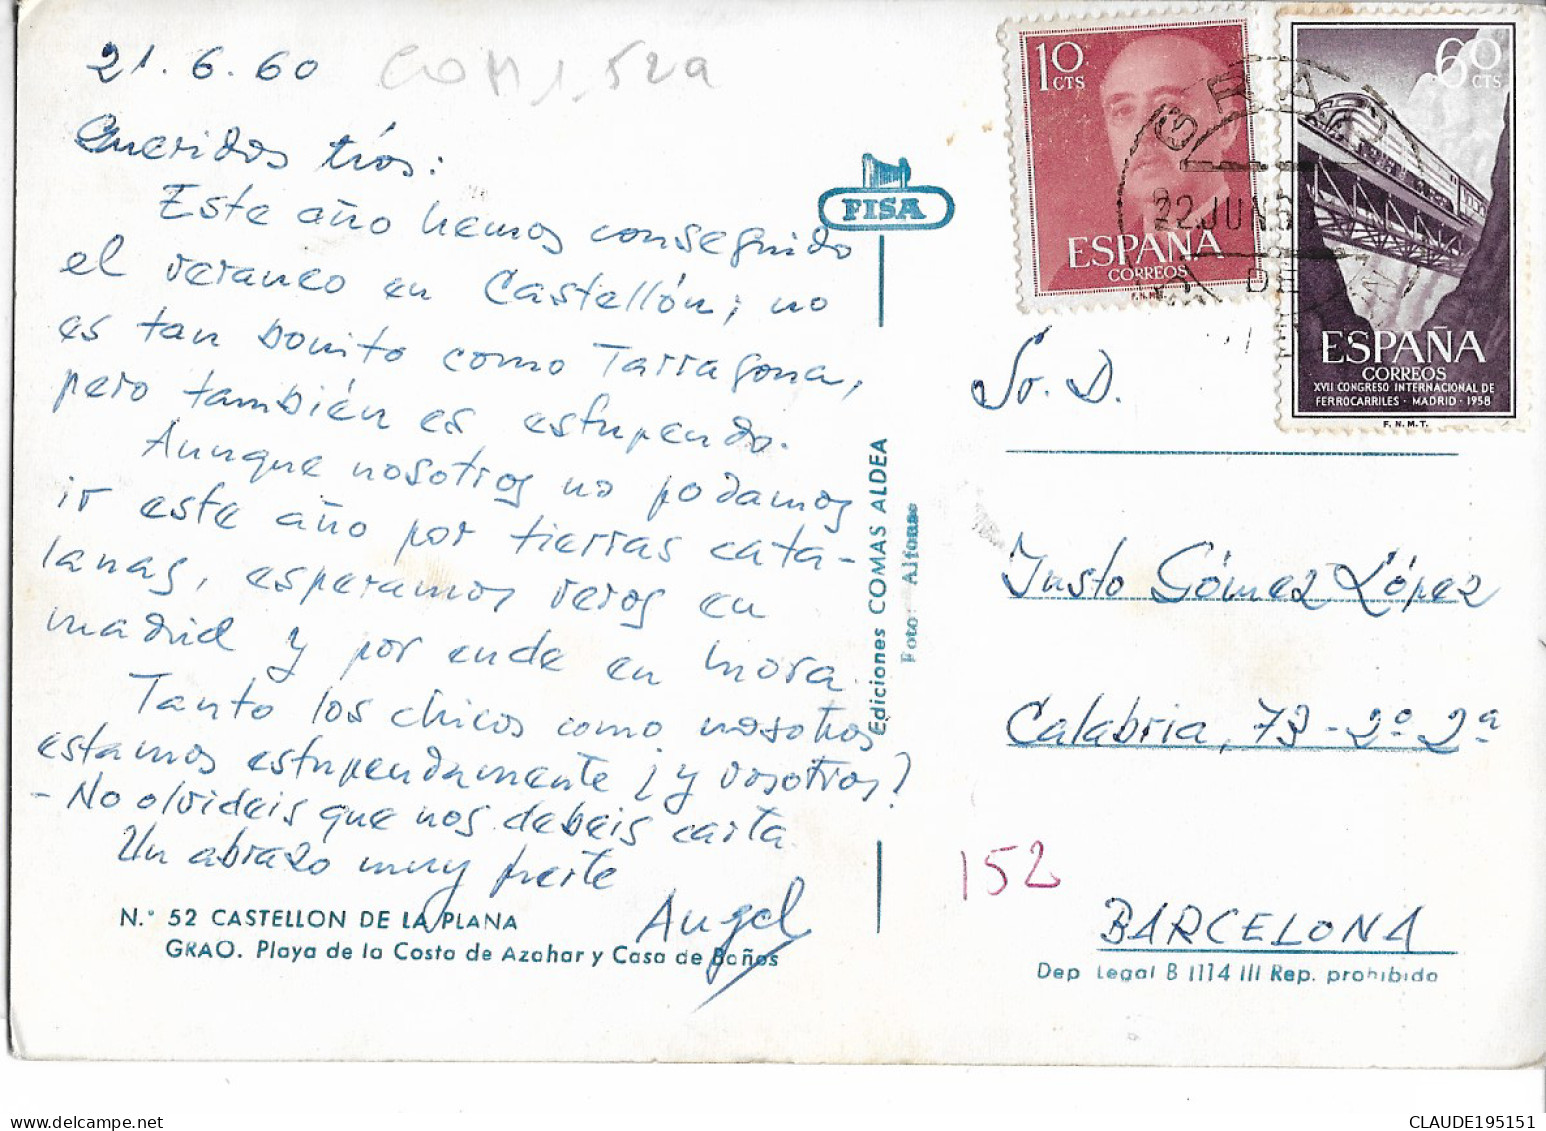 21.6.60
COM1.52a
Queridos tíos:
Este año hemos conseguido
el veraneo en Castellón; no
es tan bonito como Tarragona,
pero también es estupendo.
Aunque nosotros no podamos
ir este año por tierras cata-
lanas, esperamos veros en
Madrid y por ende en Mora.
Tanto los chicos como nosotros
estamos estupendamente ¿y vosotros?
- No olvideis que nos debeis carta.
Un abrazo muy fuerte
Angel
N.° 52 CASTELLON DE LA PLANA
GRAO. Playa de la Costa de Azahar y Casa de Baños
FISA
Ediciones COMAS ALDEA
Foto: Alfonso
10
CTS
ESPAÑA
CORREOS
F.N.M.T.
60
CTS
ESPAÑA
CORREOS
XVII CONGRESO INTERNACIONAL DE
FERROCARRILES · MADRID · 1958
F. N. M. T.
GRAO
22 JUN
DE
Sr. D.
Justo Gómez López
Calabria, 73 - 2º 2ª
152
BARCELONA
Dep Legal B 1114 III Rep. prohibida
CLAUDE195151